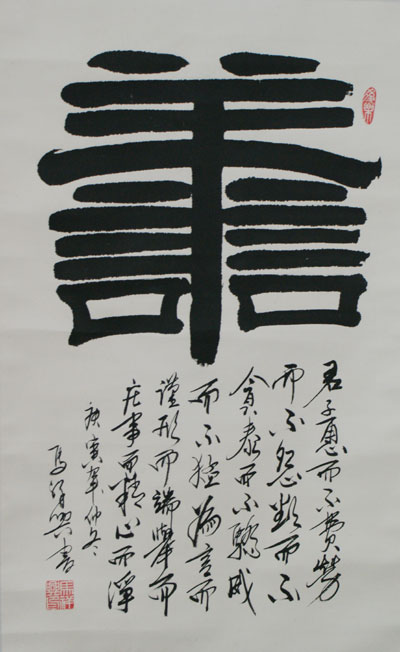 譱
君子惠而不費勞
而不怨欲而不
貪泰而不驕威
而不猛為言而
謹形而端舉而
庄事而精心而淨
庚寅年仲冬
馬興書